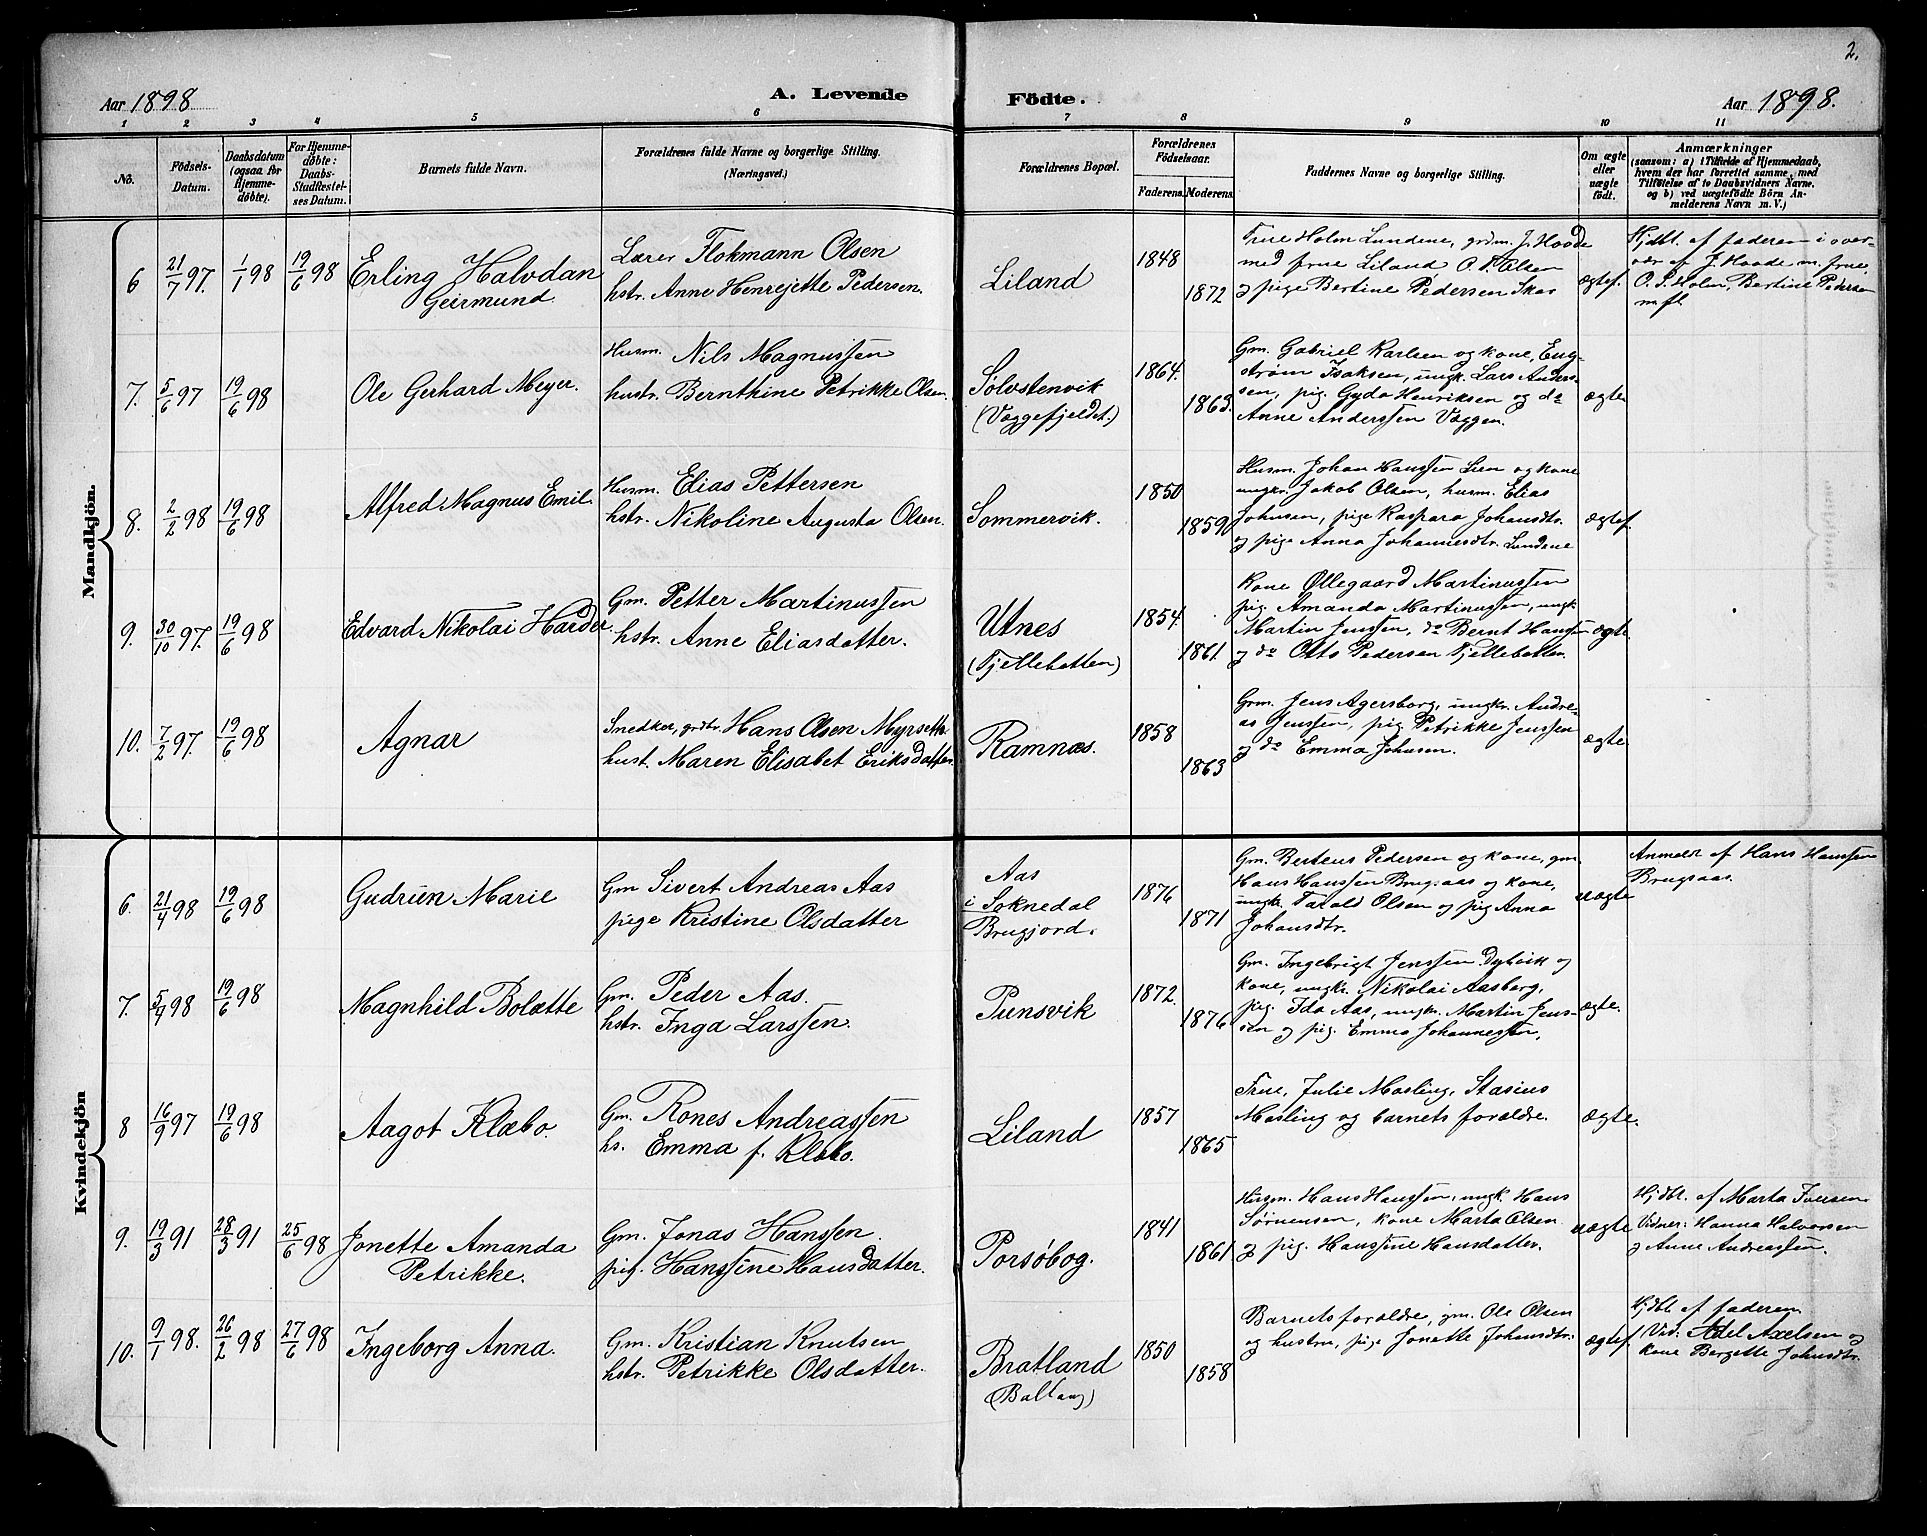 2.
Aar 1898
A. Levende
Födte.
Aar 1898.
1 2 3 4 5 6 7 8 9 10 11
No.
Födsels-
Datum.
Daabsdatum
(ogsaa for
Hjemme-
döbte).
For Hjemme-
döbte:
Daabs-
Stadfæstel-
ses Datum.
Barnets fulde Navn.
Forældrenes fulde Navne og borgerlige Stilling.
(Næringsvei.)
Forældrenes Bopæl.
Forældrenes
Födselsaar.
Faderens. Moderens.
Faddernes Navne og borgerlige Stilling.
Om ægte
eller
uægte
födt.
Anmærkninger
(saasom: a) i Tilfælde af Hjemmedaab,
hvem der har forrettet samme, med
Tilföielse af to Daabsvidners Navne,
og b) ved uægtefödte Börn An-
melderens Navn m. V.)
Mandkjön.
6 21/7 97. 1/1 98 19/6 98
Erling Halvdan
Geirmund.
Lærer Flokmann Olsen
hstr. Anne Henrejette Pedersen.
Liland
1848
1872
Frue Holm Lundene, grdm. J. Haade
med frue Liland O. P. Olsen
og pige Bertine Pedersen Skar
ægtef.
Hjdbt. af faderen i over-
vær af J. Haade m. frue,
O. P. Holm, Bertine Pedersen
m. fl.
7. 5/6 97 19/6 98
Ole Gerhard Meyer.
Husm. Nils Magnussen
hustr. Bernthine Petrikke Olsen.
Sølvstenvik
(Væggefjeldet.)
1864.
1863.
Gm. Gabriel Karlsen og kone, Eng-
strøm Isaksen, ungk. Lars Anders-
sen, pig. Gyda Henriksen og do
Anne Anderssen Væggen.
ægte
8. 2/2 98 19/6 98
Alfred Magnus Emil.
Husm. Elias Pettersen
hstr. Nikoline Augusta Olsen.
Sommervik.
1850
1859
Husm. Johan Hanssen Lien og kone
ungkr. Jakob Olsen, husm. Elias
Johnsen, pige Kaspara Johansdtr.
og pige Anna Johannesdtr. Lundene
ægtef.
9. 30/10 97. 19/6 98
Edvard Nikolai Harder.
Gm. Petter Martinussen
hstr. Anne Eliasdatter.
Utnes
(Fjellebotten)
1854.
1861.
Kone Ollegaard Martinussen
pig. Amanda Martinussen, ungk.
Martin Jenssen, do Bernt Hanssen
og do Otto Pedersen Fjellebotten.
ægte
10. 7/2 97. 19/6 98
Agnar
Snedker, grdbr. Hans Olsen Myrseth
hust. Maren Elisabet Eriksdatter.
Ramnæs.
1858
1863
Grm. Jens Agersborg, ungkr. Andre-
as Jenssen, pig. Petrikke Jenssen
og do Emma Johnsen.
ægte
Kvindekjön
6. 21/4 98 19/6 98
Gudrun Marie
Gm Sivert Andreas Aas
pige Kristine Olsdatter
Aas
i Soknedal
Brugjord.
1876
1871
Gm. Berteus Pedersen og kone, gm.
Hans Hanssen Brugsaas og kone,
ungk. Olsen og pig Anna
Johansdtr.
uægte
Anmeldt af Hans Hanssen
Brugsaas.
7. 5/4 98 19/6 98
Magnhild Bolætte
Gm. Peder Aas.
hstr. Inga Larssen.
Punsvik
1872.
1876
Gm. Ingebrigt Jenssen Dybvik og
kone, ungkr. Nikolai Aasberg,
pig. Ida Aas, ungkr. Martin Jens-
sen og pig. Emma Johannessen.
ægte.
8 16/9 97 19/6 98
Aagot Klæbo.
Gm. Rones Andreassen
hs. Emma f. Klæbo.
Liland
1857
1865
Frue, Julie Masling, Stasius
Masling og barnets forældre.
ægte.
9. 19/3 91 28/3 91 25/6 98
Jonette Amanda
Petrikke.
Gm. Jonas Hanssen.
pig. Hanssine Hansdatter.
Porsøbog.
1841
1861
Husm. Hans Hanssen, ungk. Hans
Sørnensen, kone Marta Olsen
og pig. Hanssine Hansdatter.
uægte
Hjdbt. af Marta Iversen
Vidner: Hanna Halvorsen
og Anne Andreassen.
10. 9/1 98. 26/2 98 27/6 98
Ingeborg Anna.
Gm. Kristian Knutsen
hstr. Petrikke Olsdatter.
Bratland
(Baltang)
1850
1858
Barnets forældre, gm. Ole Olsen
og hustru, pige Jonette Johansdtr.
ægtef.
Hjdbt. af faderen.
Vid. Adel Axelsen og
kone Bergette Johnsdtr.